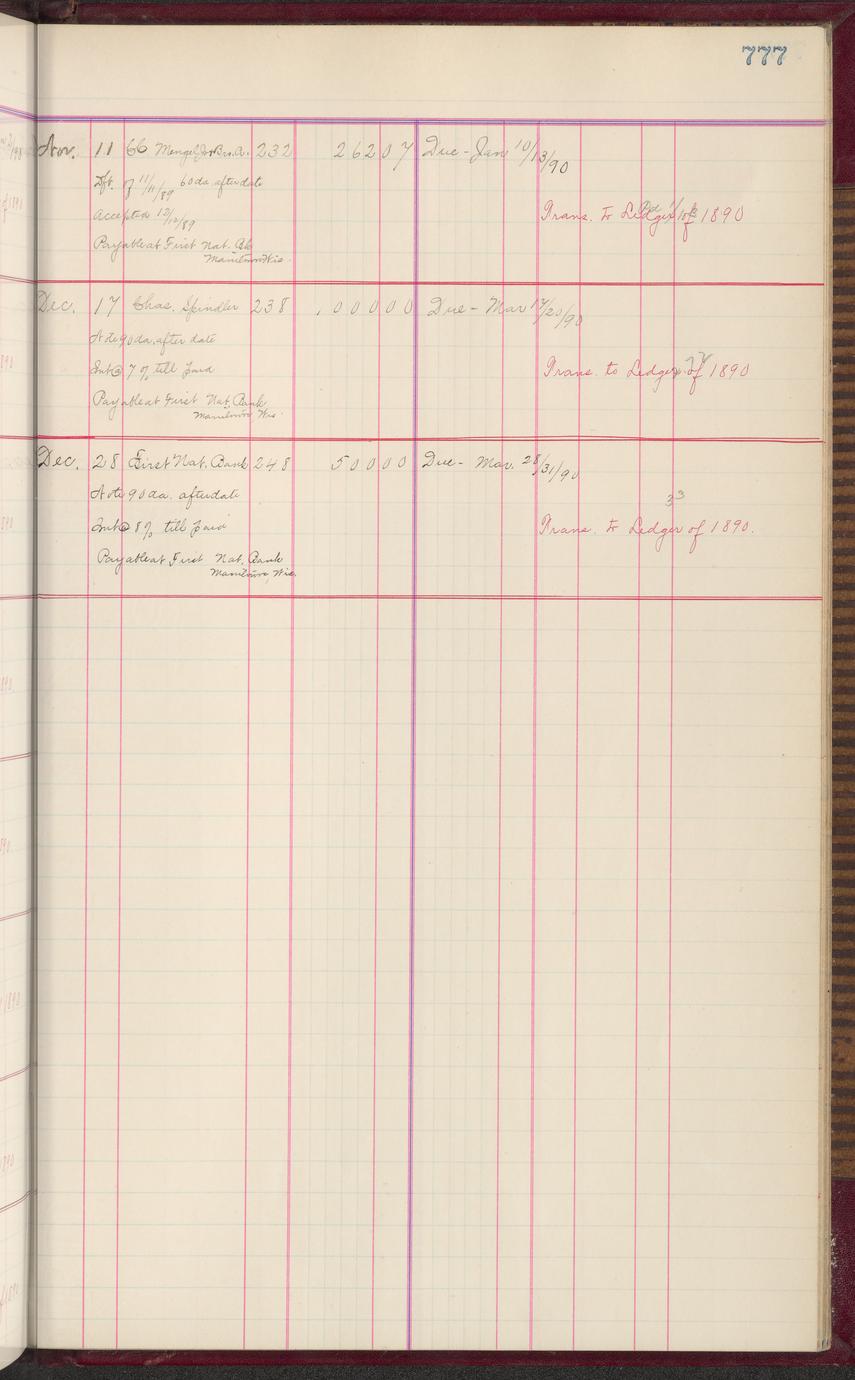 777
Nov. 11 66 Mengel Jr Bro. Co. 232 262 07 Due - Jan 10/13/90
Dft. of 11/11/89 60 da. after date
Accepted 12/12/89 Trans. to Ledger of 1890
Payable at First Nat. Bk
Manitowoc Wis.
Dec. 17 Chas. Spindler 238 000 00 Due - Mar 17/20/90
Note 90 da. after date
Int @ 7% till paid Trans. to Ledger of 1890
Payable at First Nat. Bank
Manitowoc Wis.
Dec. 28 First Nat. Bank 248 500 00 Due - Mar. 28/31/90
Note 90 da. after date 33
Int @ 8% till paid Trans. to Ledger of 1890.
Payable at First Nat. Bank
Manitowoc, Wis.